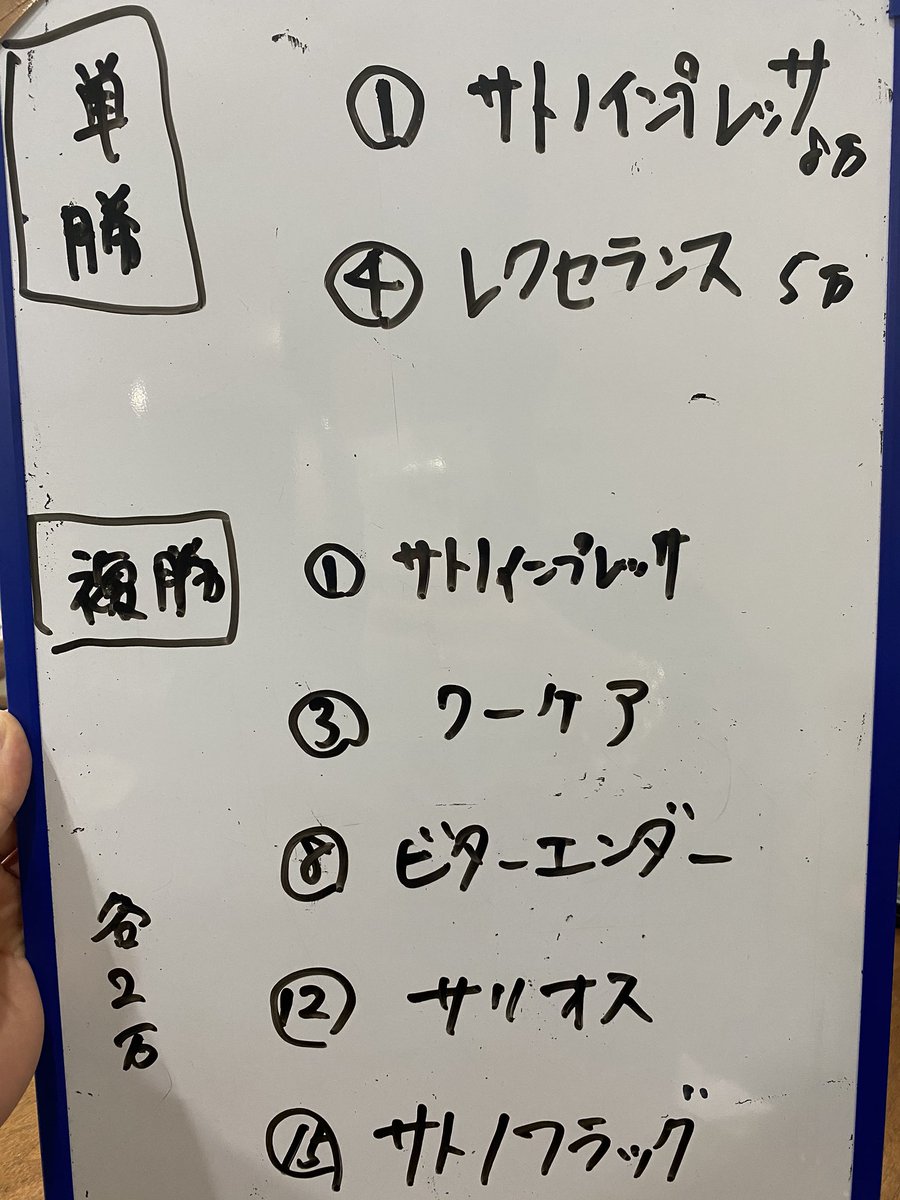 単勝
① サトノインプレッサ 8万
④ レクセランス 5万
複勝
① サトノインプレッサ
③ ワーケア
⑧ ビターエンダー
⑫ サリオス
⑮ サトノフラッグ
各2万